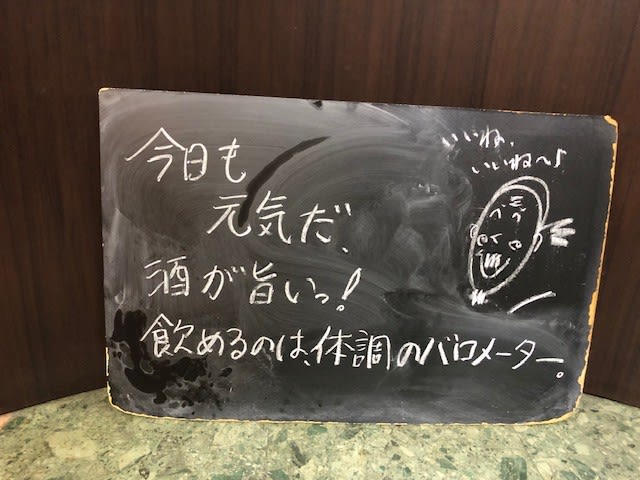 今日も
元気だ、
酒が旨いっ!
飲めるのは、体調のバロメーター。
いいね、
いいねへ♪